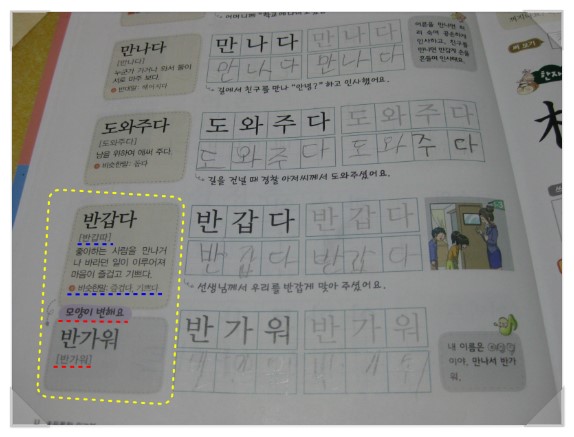 만나다
[만나다]
누군가 가거나 와서 둘이
서로 마주 보다.
반대말: 헤어지다
만나다 만나다
만나다 만나다
길에서 친구를 만나 "안녕?" 하고 인사했어요.
어른을 만나면 허
리 숙여 공손하게
인사하고, 친구를
만나면 반갑게 손을
흔들며 인사해요.
도와주다
[도와주다]
남을 위하여 애써 주다.
비슷한말: 돕다
도와주다 도와주다
도와주다 도와주다
길을 건널 때 경찰 아저씨께서 도와주셨어요.
반갑다
[반갑따]
좋아하는 사람을 만나거
나 바라던 일이 이루어져
마음이 즐겁고 기쁘다.
비슷한말: 즐겁다, 기쁘다
반갑다 반갑다
반갑다 반갑다
선생님께서 우리를 반갑게 맞아 주셨어요.
모양이 변해요
반가워
[반가워]
반가워 반가워
내 이름은
이야. 만나서 반가
워.